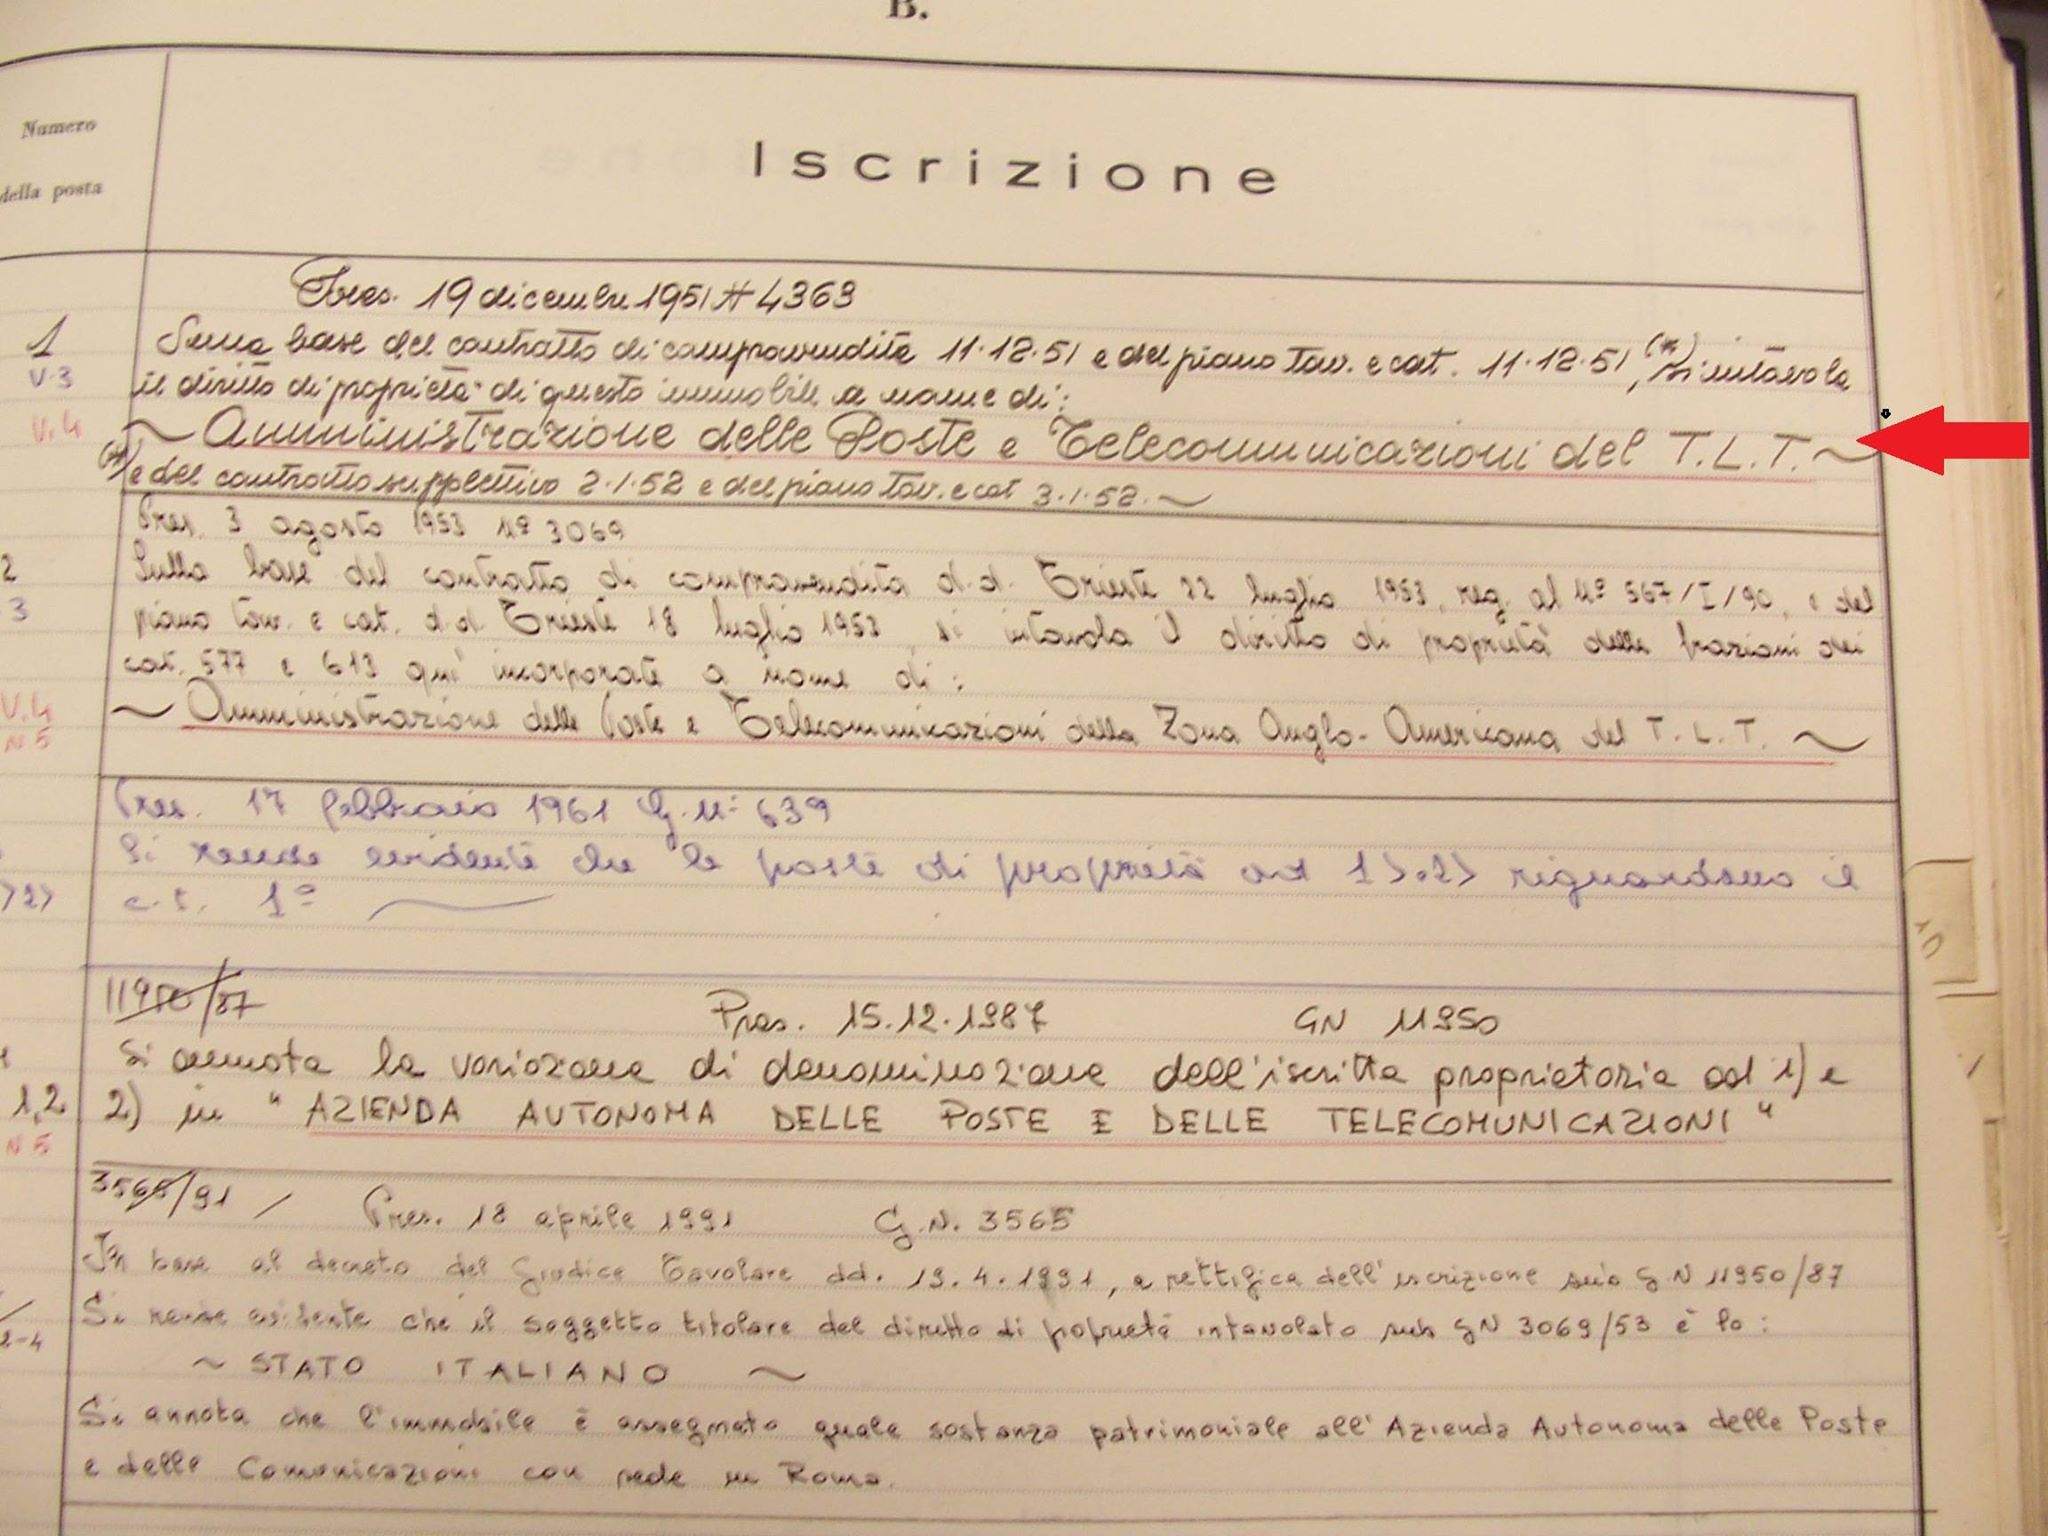 B.
Numero
della posta
Iscrizione
Pres. 19 dicembre 1951 # 4363
1
Sulla base del contratto di compravendita 11.12.51 e del piano tav. e cat. 11.12.51, (*) si intavola
V.3
il diritto di proprietà di questo immobile a nome di:
V.4
~ Amministrazione delle Poste e Telecomunicazioni del T.L.T. ~
(*) e del contratto suppletivo 2.1.52 e del piano tav. e cat 3.1.52. ~
Pres. 3 agosto 1953 Nº 3069
2
Sulla base del contratto di compravendita d.d. Trieste 22 luglio 1953, reg. al Nº 567/I/90, e del
3
piano tav. e cat. d.d. Trieste 18 luglio 1953, si intavola il diritto di proprietà delle frazioni dei
cat. 577 e 613 qui incorporate a nome di:
V.4
N 5
~ Amministrazione delle Poste e Telecomunicazioni della Zona Anglo-Americana del T.L.T. ~
Pres. 17 febbraio 1961 G.N: 639
Si rende evidente che le poste di proprietà ad 1>.2> riguardano il
>2>
c.t. 1º
11950/87
Pres. 15.12.1987 GN 11950
Si annota la variazione di denominazione dell'iscritta proprietaria ad 1) e
1,2
2) in "AZIENDA AUTONOMA DELLE POSTE E DELLE TELECOMUNICAZIONI"
N 5
3565/91 / Pres. 18 aprile 1991 G.N. 3565
In base al decreto del Giudice Tavolare dd. 19.4.1991, a rettifica dell'iscrizione sub G.N 11950/87
Si rende evidente che il soggetto titolare del diretto di poprietà intavolato sub GN 3069/53 è lo:
2-4
~ STATO ITALIANO ~
Si annota che l'immobile è assegnato quale sostanza patrimoniale all'Azienda Autonoma delle Poste
e delle Comunicazioni con sede in Roma.
10